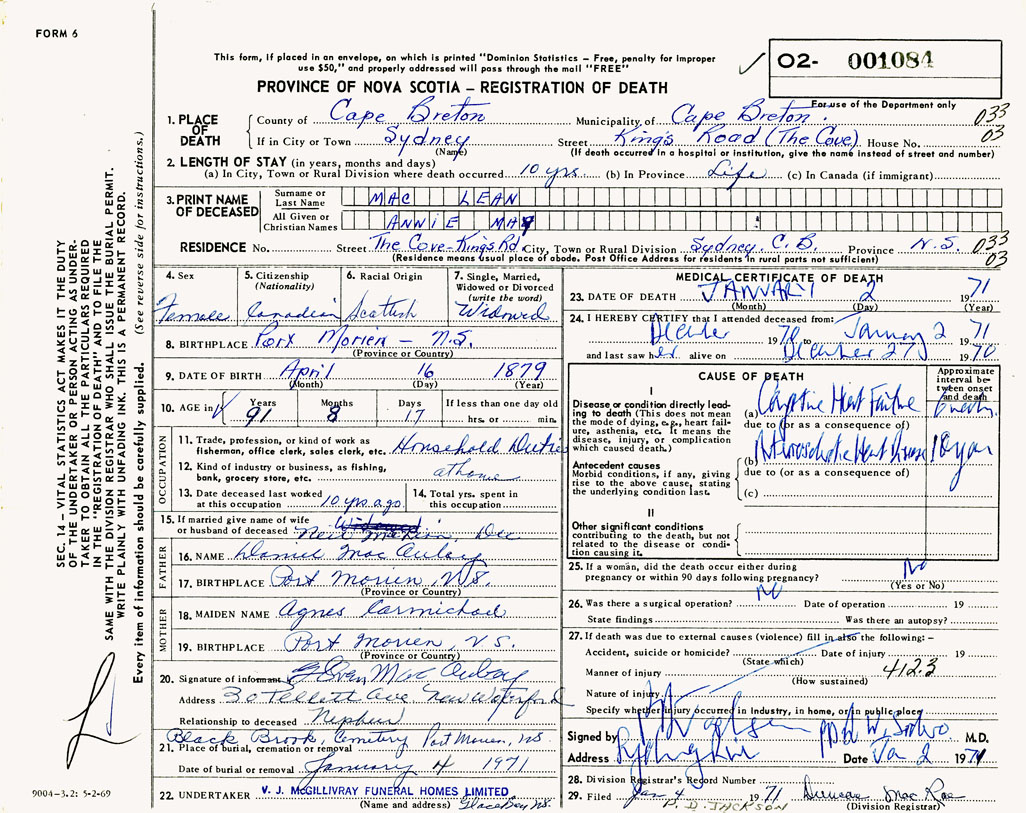 FORM 6
This form, if placed in an envelope, on which is printed "Dominion Statistics – Free, penalty for improper
use $50," and properly addressed will pass through the mail "FREE"
02- 001084
For use of the Department only
PROVINCE OF NOVA SCOTIA – REGISTRATION OF DEATH
1. PLACE OF DEATH
County of Cape Breton Municipality of Cape Breton. 033
If in City or Town Sydney Street King's Road (The Cove) House No. 03
(Name) (If death occurred in a hospital or institution, give the name instead of street and number)
2. LENGTH OF STAY (in years, months and days)
(a) In City, Town or Rural Division where death occurred 10 yrs. (b) In Province Life (c) In Canada (if immigrant)
3. PRINT NAME OF DECEASED
Surname or Last Name MAC LEAN
All Given or Christian Names ANNIE MAY
RESIDENCE No. Street The Cove-Kings Rd City, Town or Rural Division Sydney, C.B. Province N.S. 033
(Residence means usual place of abode. Post Office Address for residents in rural parts not sufficient) 03
4. Sex
Female
5. Citizenship
(Nationality)
Canadian
6. Racial Origin
Scottish
7. Single, Married,
Widowed or Divorced
(write the word)
Widowed
8. BIRTHPLACE Port Morien – N.S.
(Province or Country)
9. DATE OF BIRTH April 16 1879
(Month) (Day) (Year)
10. AGE in Years Months Days If less than one day old
91 8 17 hrs. or min.
OCCUPATION
11. Trade, profession, or kind of work as
fisherman, office clerk, sales clerk, etc. Household Duties
12. Kind of industry or business, as fishing,
bank, grocery store, etc. at home
13. Date deceased last worked
at this occupation 10 yrs ago
14. Total yrs. spent in
this occupation
15. If married give name of wife Widowed
or husband of deceased Neil Dec
FATHER
16. NAME Daniel Mac Aulay
17. BIRTHPLACE Port Morien, N.S.
(Province or Country)
MOTHER
18. MAIDEN NAME Agnes Carmichael
19. BIRTHPLACE Port Morien, N.S.
(Province or Country)
20. Signature of informant Mac Aulay
Address 30 Pellett Ave New Waterford
Relationship to deceased Nephew
Black Brook, Cemetery Port Morien, NS
21. Place of burial, cremation or removal
Date of burial or removal January 4 1971
22. UNDERTAKER V. J. McGILLIVRAY FUNERAL HOMES LIMITED
(Name and address) Glace Bay NS.
MEDICAL CERTIFICATE OF DEATH
23. DATE OF DEATH JANUARY 2 1971
(Month) (Day) (Year)
24. I HEREBY CERTIFY that I attended deceased from:
December 1970 to January 2 1971
and last saw her alive on December 27 1970
CAUSE OF DEATH
Approximate
interval be-
tween onset
and death
I
Disease or condition directly lead-
ing to death (This does not mean
the mode of dying, e.g., heart fail-
ure, asthenia, etc. It means the
disease, injury, or complication
which caused death.)
(a) Congestive Heart Failure
due to (or as a consequence of)
(b) Arteriosclerotic Heart Disease 10 years
Antecedent causes
Morbid conditions, if any, giving
rise to the above cause, stating
the underlying condition last.
due to (or as a consequence of)
(c)
II
Other significant conditions
contributing to the death, but not
related to the disease or condi-
tion causing it.
25. If a woman, did the death occur either during
pregnancy or within 90 days following pregnancy? No
(Yes or No)
26. Was there a surgical operation? No Date of operation 19
State findings Was there an autopsy?
27. If death was due to external causes (violence) fill in also the following: –
Accident, suicide or homicide? Date of injury 19
(State which)
Manner of injury 412.3
(How sustained)
Nature of injury
Specify whether injury occurred in industry, in home, or in public place
Signed by M.D.
Address Date Jan 2 1971
28. Division Registrar's Record Number
29. Filed Jan 4 1971 Duncan Mac Rae
P. D. JACKSON (Division Registrar)
SEC. 14 – VITAL STATISTICS ACT MAKES IT THE DUTY
OF THE UNDERTAKER OR PERSON ACTING AS UNDER-
TAKER TO OBTAIN ALL THE PARTICULARS REQUIRED
IN THE "REGISTRATION OF DEATH" AND TO FILE THE
SAME WITH THE DIVISION REGISTRAR WHO SHALL ISSUE THE BURIAL PERMIT.
WRITE PLAINLY WITH UNFADING INK. THIS IS A PERMANENT RECORD.
Every item of information should be carefully supplied. (See reverse side for instructions.)
9004-3.2: 5-2-69